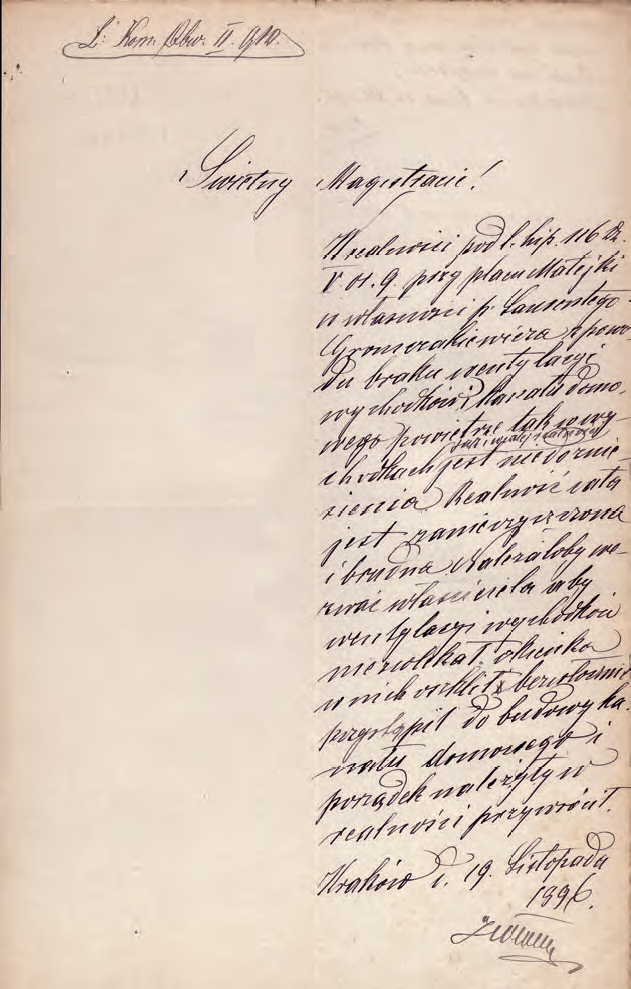 L: Kom. Obw. II. 910.
Świetny Magistracie!
W realności pod l. hip. 116 dz.
V. or. 9. przy placu Matejki
u własności p.
Gromczakiewicza z powo-
du braku wentylacyi
wychodków i kanału domo-
wego powietrze tak w wy-
jak i całej realności
chodkach jest niedoznie-
sienia. Realność cała
jest zanieczyszczona
i brudna. Należałoby we-
zwać właściciela aby
wentylacyi wychodków
niezwlekał, okienka
w nich oszklił, bezwłocznie
przystąpił do budowy ka-
nału domowego i
porządek należyty w
realności przywrócił.
Kraków d. 19. Listopada
1896.